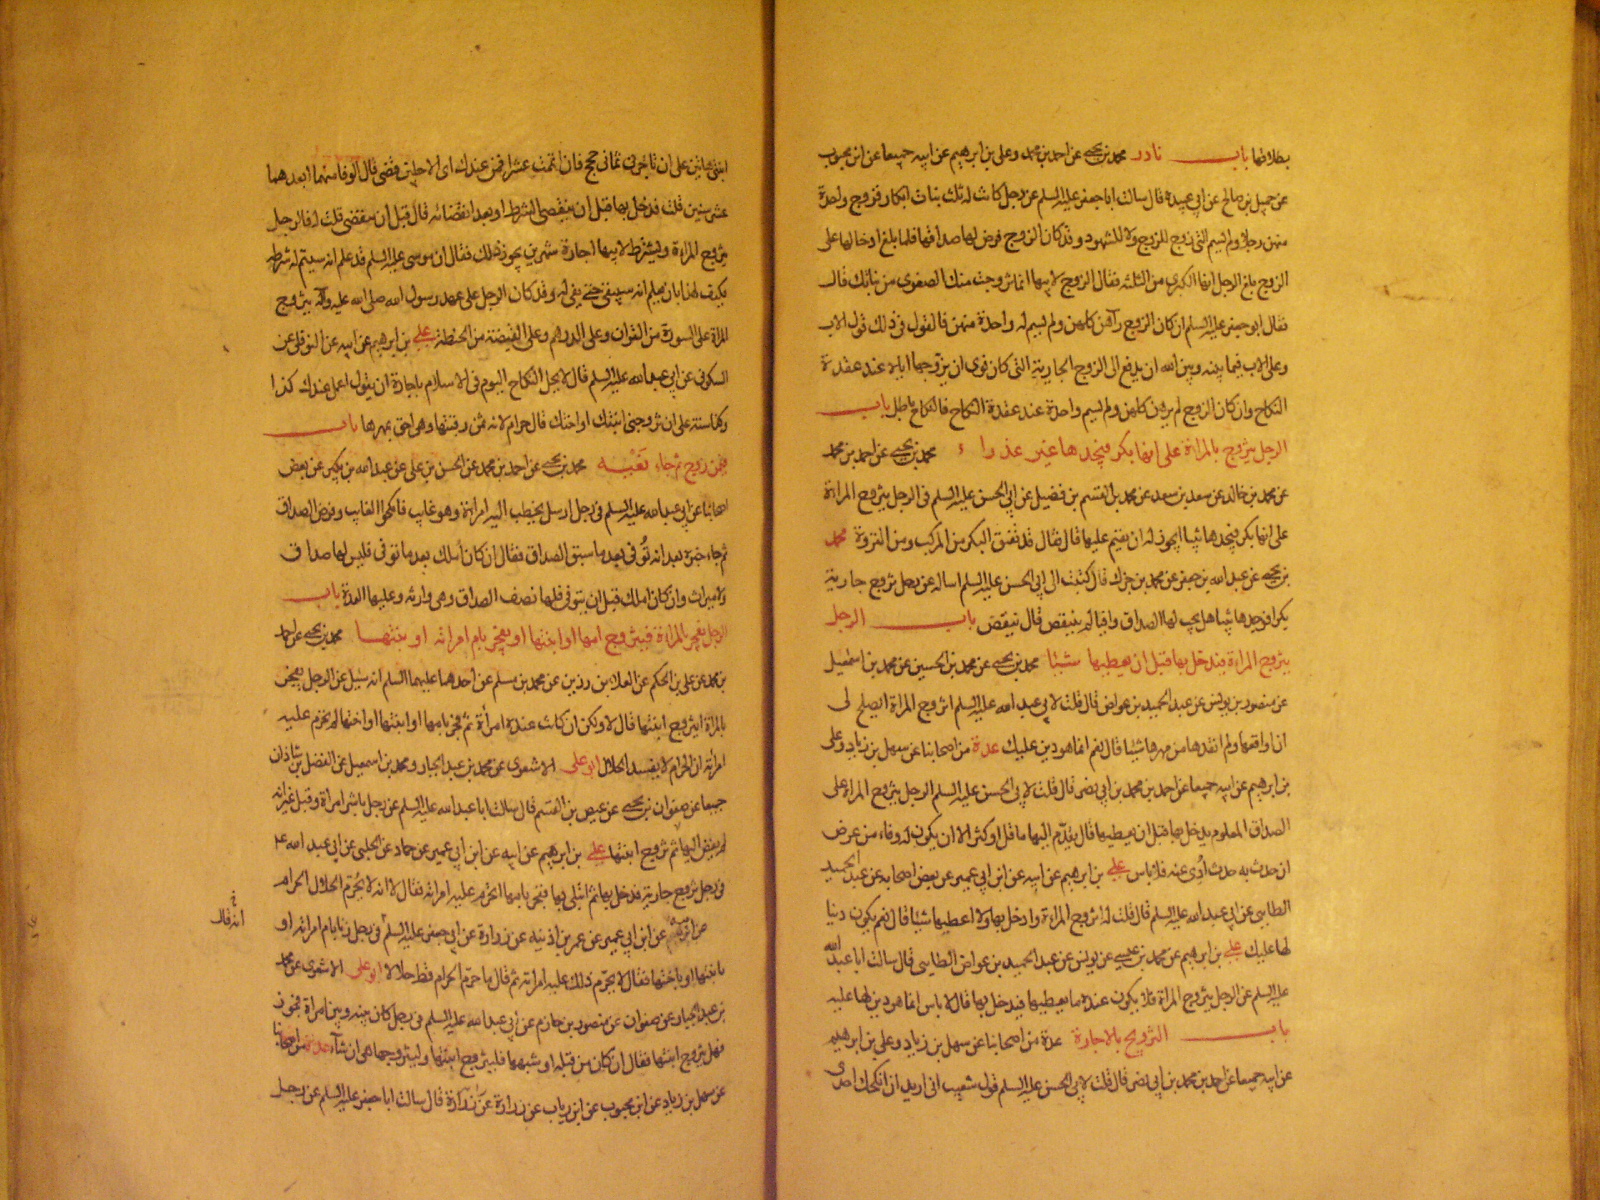 بطلاقها باب نادر محمد بن يحيى عن احمد بن محمد وعلى بن ابرهيم عن ابيه جميعا عن ابن محبوب
عن جميل بن صالح عن ابى عبيدة قال سالت ابا جعفر عليه السلم عن رجل كانت له ثلث بنات ابكار فزوج واحدة
منهن رجلا ولم يسم التى زوج للزوج ولا للشهود وقد كان الزوج فرض لها صداقها فلما بلغ ادخالها على
الزوج بلغ الرجل انها الكبرى من الثلثة فقال الزوج لابيها انما تزوجت منك الصغرى من بناتك قال
فقال ابو جعفر عليه السلم ان كان الزوج رآهن كلهن ولم يسم له واحدة منهن فالقول فى ذلك قول الاب
وعلى الاب فيما بينه وبين الله ان يدفع الى الزوج الجارية التى كان نوى ان يزوجها اياه عند عقدة
النكاح وان كان الزوج لم يرهن كلهن ولم يسم واحدة عند عقدة النكاح فالنكاح باطل باب
الرجل يتزوج بالمراة على انها بكر فيجدها غير عذراء محمد بن يحيى عن احمد بن محمد
عن محمد بن خالد عن سعد بن سعد عن محمد بن القسم بن فضيل عن ابى الحسن عليه السلم فى الرجل يتزوج المراة
على انها بكر فيجدها ثيبا ايجوز له ان يقيم عليها قال فقال قد تفتق البكر من المركب ومن النزوة محمد
بن يحيى عن عبد الله بن جعفر عن محمد بن جزك قال كتبت الى ابى الحسن عليه السلم اساله عن رجل تزوج جارية
بكرا فوجدها ثيبا هل يجب لها الصداق وافيا ام ينتقص قال ينتقص باب الرجل
يتزوج المراة فيدخل بها قبل ان يعطيها شيئا محمد بن يحيى عن محمد بن الحسين عن محمد بن اسمعيل
عن منصور بن يونس عن عبد الحميد بن عواض قال قلت لابى عبد الله عليه السلم اتزوج المراة ايصلح لى
ان اواقعها ولم انقدها من مهرها شيئا قال نعم انما هو دين عليك عدة من اصحابنا عن سهل بن زياد وعلى
بن ابرهيم عن ابيه جميعا عن احمد بن محمد بن ابى نصر قال قلت لابى الحسن عليه السلم الرجل يتزوج المراة على
الصداق المعلوم يدخل بها قبل ان يعطيها قال يقدم اليها ما قل او كثر الا ان يكون له وفاء من عرض
ان حدث به حدث ادى عنه فلا باس على بن ابرهيم عن ابيه عن ابن ابى عمير عن بعض اصحابه عن عبد الحميد
الطايى عن ابى عبد الله عليه السلم قال قلت له اتزوج المراة وادخل بها ولا اعطيها شيئا قال نعم يكون دينا
لها عليك على بن ابرهيم عن محمد بن عيسى عن يونس عن عبد الحميد بن عواض الطايى قال سالت ابا عبد الله
عليه السلم عن الرجل يتزوج المراة فلا يكون عنده ما يعطيها فيدخل بها قال لا باس انما هو دين لها عليه
باب التزويج بالاجارة عدة من اصحابنا عن سهل بن زياد وعلى بن ابرهيم
عن ابيه جميعا عن احمد بن محمد بن ابى نصر قال قلت لابى الحسن عليه السلم قول شعيب انى اريد ان انكحك احدى
ابنتى هاتين على ان تاجرنى ثمانى حجج فان اتممت عشرا فمن عندك اى الاجلين قضى قال الوفا منهما ابعدهما
عشر سنين قلت فدخل بها قبل ان ينقضى الشرط او بعد انقضائه قال قبل ان ينقضى قلت له فالرجل
يتزوج المراة ويشترط لابيها اجارة شهرين يجوز ذلك فقال ان موسى عليه السلم قد علم انه سيتم له شرطه
فكيف لهذا بان يعلم انه سيبقى حتى يفى له وقد كان الرجل على عهد رسول الله صلى الله عليه وآله يتزوج
المراة على السورة من القران وعلى الدرهم وعلى القبضة من الحنطة على بن ابرهيم عن ابيه عن النوفلى عن
السكونى عن ابى عبد الله عليه السلم قال لا يحل النكاح اليوم فى الاسلام باجارة ان يقول اعمل عندك كذا
وكذا سنة على ان تزوجنى ابنتك او اختك قال حرام لانه ثمن رقبتها وهى احق بمهرها باب
فيمن زوج ثم جاء نعيه محمد بن يحيى عن احمد بن محمد عن الحسن بن على عن عبد الله بن بكير عن بعض
اصحابنا عن ابى عبد الله عليه السلم فى رجل ارسل يخطب اليه امراة وهو غايب فانكحوا الغايب وفرض الصداق
ثم جاء خبره بعد انه توفى بعد ما سبق الصداق فقال ان كان املك بعد ما توفى فليس لها صداق
ولا ميراث وان كان املك قبل ان يتوفى فلها نصف الصداق وهى وارثه وعليها العدة باب
الرجل يفجر بالمراة فيتزوج امها او ابنتها او يفجر بام امراته او بنتها محمد بن يحيى عن احمد
بن محمد عن على بن الحكم عن العلاء بن رزين عن محمد بن مسلم عن احدهما عليهما السلم انه سئل عن الرجل يفجر
بالمراة ايتزوج ابنتها قال لا ولكن ان كانت عنده امرأة ثم فجر بامها او ابنتها او اختها لم تحرم عليه
امراته ان الحرام لا يفسد الحلال ابو على الاشعرى عن محمد بن عبد الجبار ومحمد بن اسمعيل عن الفضل بن شاذان
جميعا عن صفوان بن يحيى عن عيص بن القسم قال سالت ابا عبد الله عليه السلم عن رجل باشر امراة وقبل غير انه
لم يفض اليها ثم تزوج ابنتها على بن ابرهيم عن ابيه عن ابن ابى عمير عن حماد عن الحلبى عن ابى عبد الله ع
فى رجل تزوج جارية فدخل بها ثم ابتلى بها ففجر بامها اتحرم عليه امراته فقال لا انه لا يحرم الحلال الحرام
عن ابن ابى عمير عن عمر بن اذنيه عن زرارة عن ابى جعفر عليه السلم فى رجل زنا بام امراته او
انه قال
بابنتها او باختها فقال لا يحرم ذلك عليه امراته ثم قال ما حرم حرام قط حلالا ابو على الاشعرى عن محمد
بن عبد الجبار عن صفوان عن منصور بن حازم عن ابى عبد الله عليه السلم فى رجل كان بينه وبين امراة فجور
فهل يتزوج ابنتها فقال ان كان من قبلة او شبهها فليتزوج ابنتها وليتزوجها هى ان شاء عدة من اصحابنا
عن سهل بن زياد عن ابن محبوب عن ابن رياب عن زرارة قال سالت ابا جعفر عليه السلم عن رجل